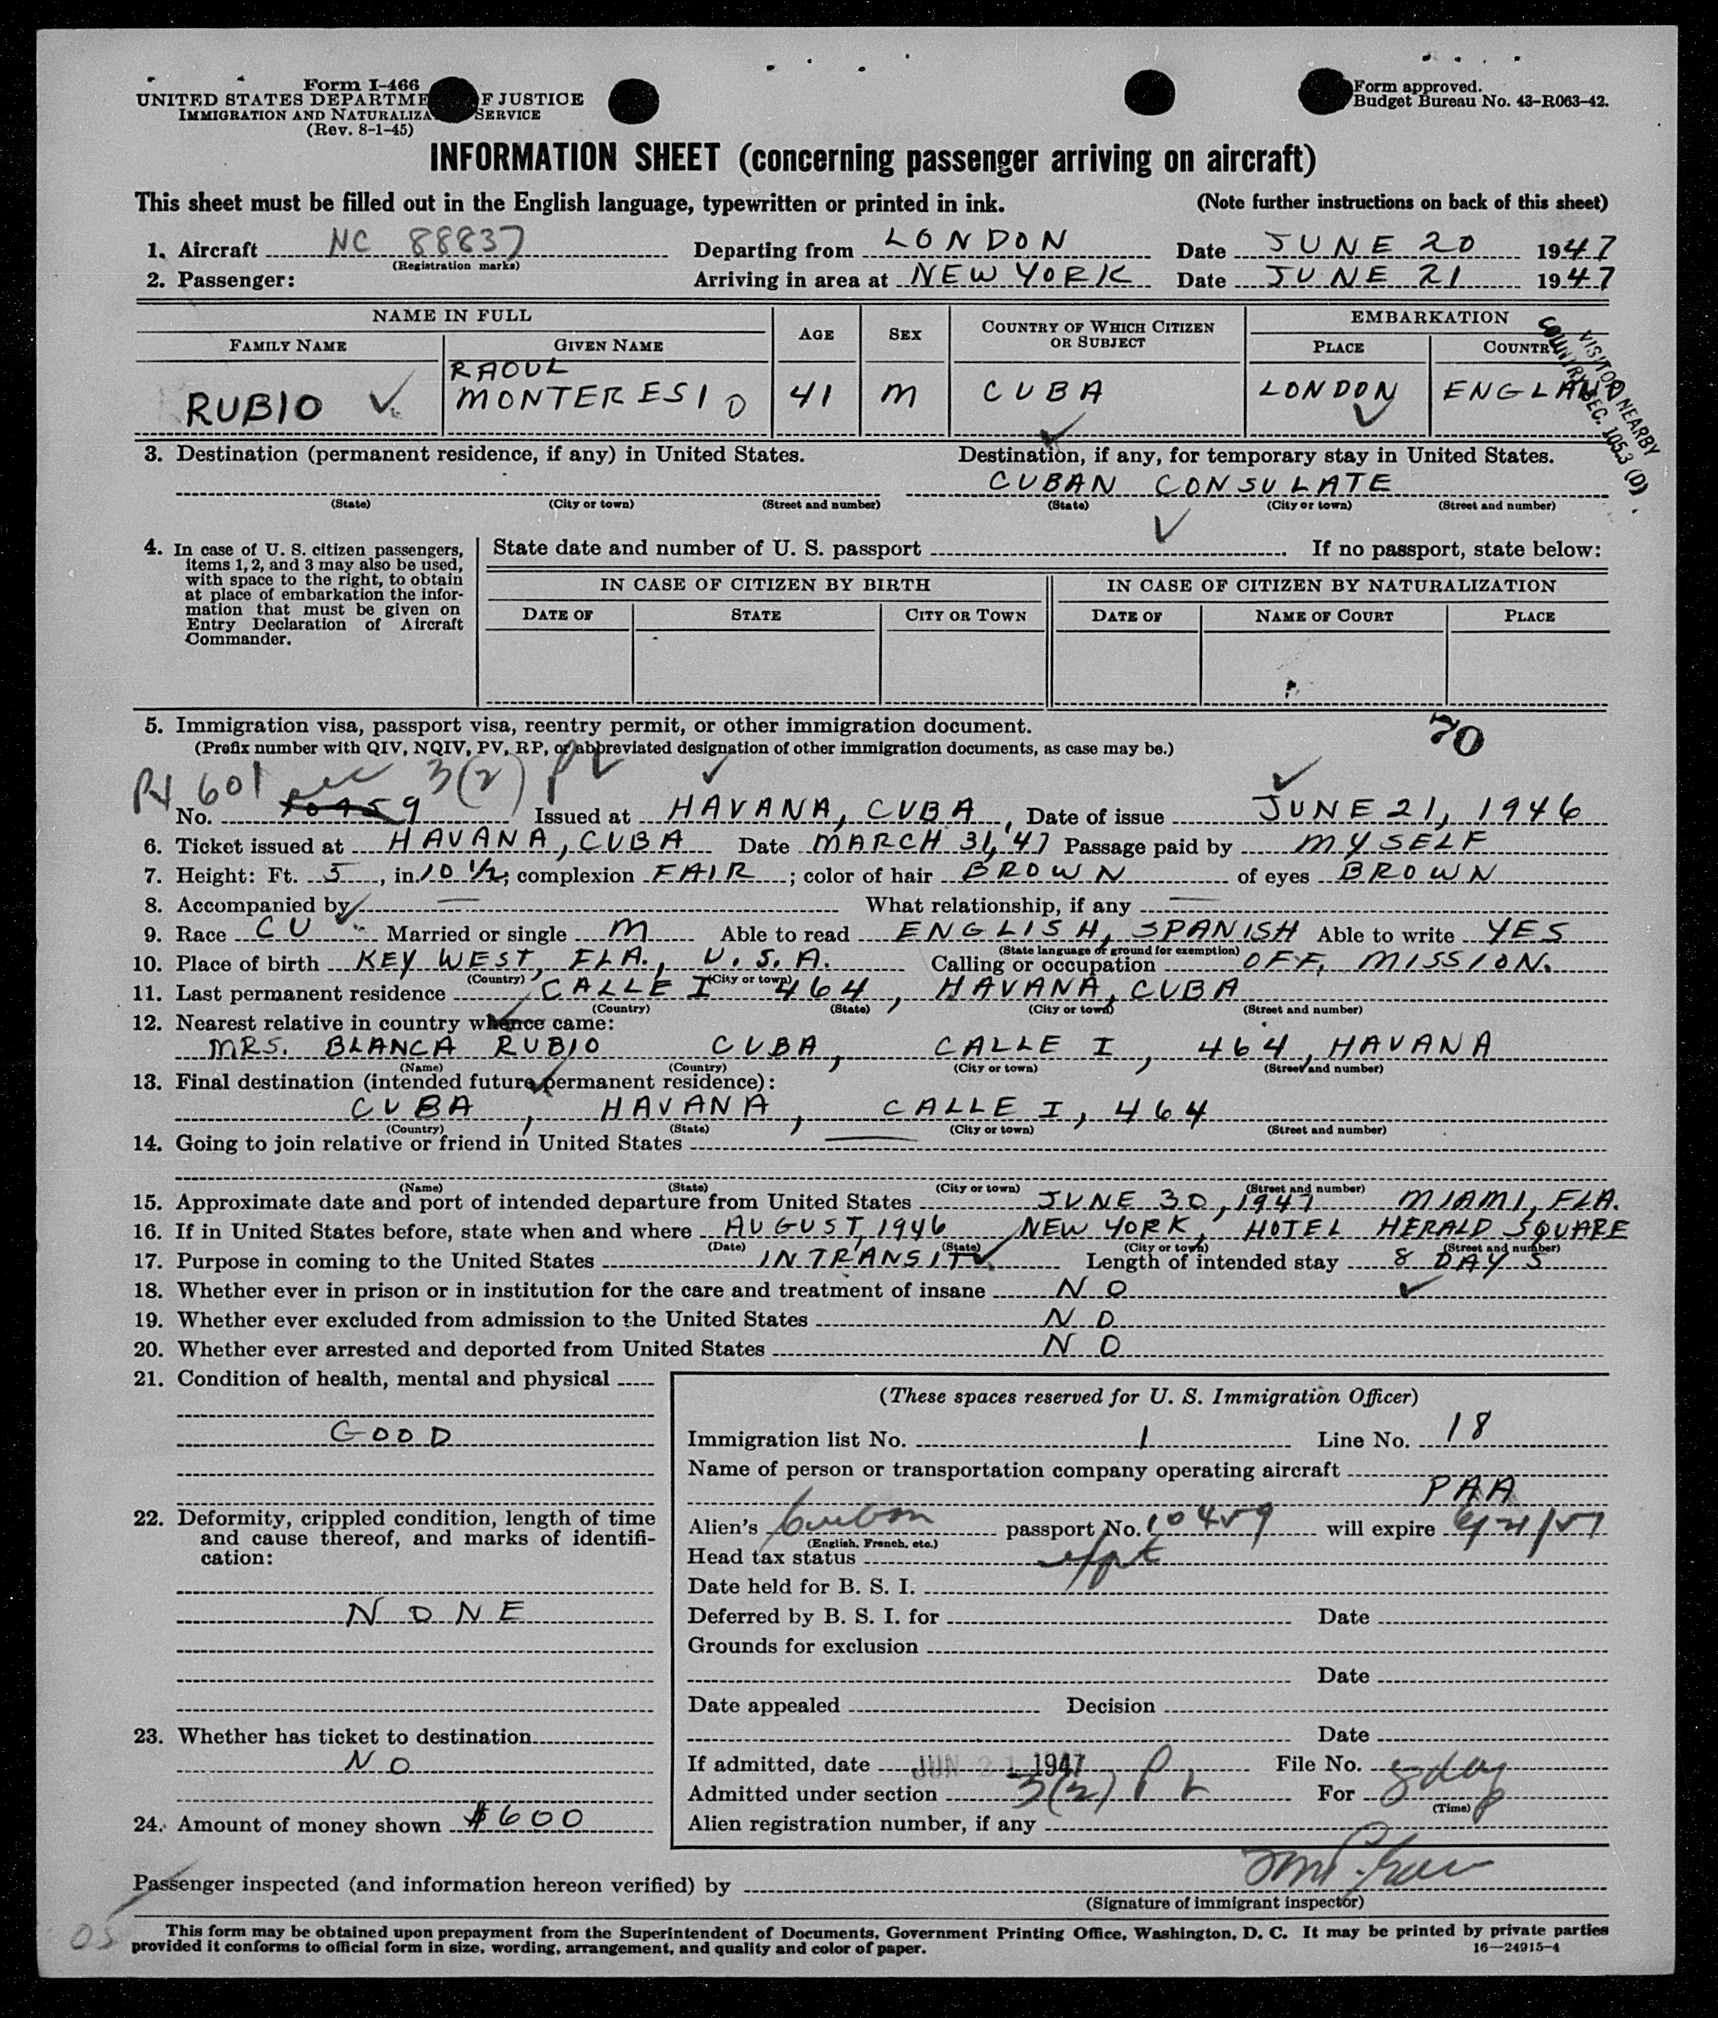 Form I-466
UNITED STATES DEPARTME F JUSTICE
IMMIGRATION AND NATURALIZA SERVICE
(Rev. 8-1-45)
Form approved.
Budget Bureau No. 43-R063-42.
INFORMATION SHEET (concerning passenger arriving on aircraft)
This sheet must be filled out in the English language, typewritten or printed in ink. (Note further instructions on back of this sheet)
1. Aircraft NC 88837 Departing from LONDON Date JUNE 20 1947
(Registration marks)
2. Passenger: Arriving in area at NEW YORK Date JUNE 21 1947
NAME IN FULL AGE SEX COUNTRY OF WHICH CITIZEN OR SUBJECT EMBARKATION
FAMILY NAME GIVEN NAME PLACE COUNTRY
RAOUL
RUBIO MONTERESIO 41 M CUBA LONDON ENGLAND
VISITOR NEARBY
COUNTRY SEC. 105.3 (D)
3. Destination (permanent residence, if any) in United States. Destination, if any, for temporary stay in United States.
CUBAN CONSULATE
(State) (City or town) (Street and number) (State) (City or town) (Street and number)
4. In case of U. S. citizen passengers, items 1, 2, and 3 may also be used, with space to the right, to obtain at place of embarkation the information that must be given on Entry Declaration of Aircraft Commander.
State date and number of U. S. passport If no passport, state below:
IN CASE OF CITIZEN BY BIRTH IN CASE OF CITIZEN BY NATURALIZATION
DATE OF STATE CITY OR TOWN DATE OF NAME OF COURT PLACE
5. Immigration visa, passport visa, reentry permit, or other immigration document.
70
(Prefix number with QIV, NQIV, PV, RP, or abbreviated designation of other immigration documents, as case may be.)
601 3(2)
No. 10459 Issued at HAVANA, CUBA, Date of issue JUNE 21, 1946
6. Ticket issued at HAVANA, CUBA Date MARCH 31, '47 Passage paid by MYSELF
7. Height: Ft. 5, in. 10 ½; complexion FAIR; color of hair BROWN of eyes BROWN
8. Accompanied by — What relationship, if any —
9. Race CU Married or single M Able to read ENGLISH, SPANISH Able to write YES
(State language or ground for exemption)
10. Place of birth KEY WEST, FLA., U.S.A. Calling or occupation OFF. MISSION.
(Country) (City or town)
11. Last permanent residence CALLE I 464, HAVANA, CUBA
(Country) (State) (City or town) (Street and number)
12. Nearest relative in country whence came:
MRS. BLANCA RUBIO CUBA, CALLE I, 464, HAVANA
(Name) (Country) (City or town) (Street and number)
13. Final destination (intended future permanent residence):
CUBA, HAVANA, CALLE I, 464
(Country) (State) (City or town) (Street and number)
14. Going to join relative or friend in United States —
(Name) (State) (City or town) (Street and number)
15. Approximate date and port of intended departure from United States JUNE 30, 1947 MIAMI, FLA.
16. If in United States before, state when and where AUGUST, 1946 NEW YORK, HOTEL HERALD SQUARE
(Date) (State) (City or town) (Street and number)
17. Purpose in coming to the United States IN TRANSIT Length of intended stay 8 DAYS
18. Whether ever in prison or in institution for the care and treatment of insane NO
19. Whether ever excluded from admission to the United States NO
20. Whether ever arrested and deported from United States NO
21. Condition of health, mental and physical
GOOD
22. Deformity, crippled condition, length of time and cause thereof, and marks of identification:
NONE
23. Whether has ticket to destination
NO
24. Amount of money shown $600
(These spaces reserved for U. S. Immigration Officer)
Immigration list No. 1 Line No. 18
Name of person or transportation company operating aircraft
PAA
Alien's Cuban passport No. 10459 will expire
(English, French, etc.)
Head tax status
Date held for B. S. I.
Deferred by B. S. I. for Date
Grounds for exclusion
Date
Date appealed Decision
Date
If admitted, date JUN 21 1947 File No.
Admitted under section 3(2) For 8 day
(Time)
Alien registration number, if any
Passenger inspected (and information hereon verified) by
(Signature of immigrant inspector)
05
This form may be obtained upon prepayment from the Superintendent of Documents, Government Printing Office, Washington, D. C. It may be printed by private parties
provided it conforms to official form in size, wording, arrangement, and quality and color of paper. 16—24915-4